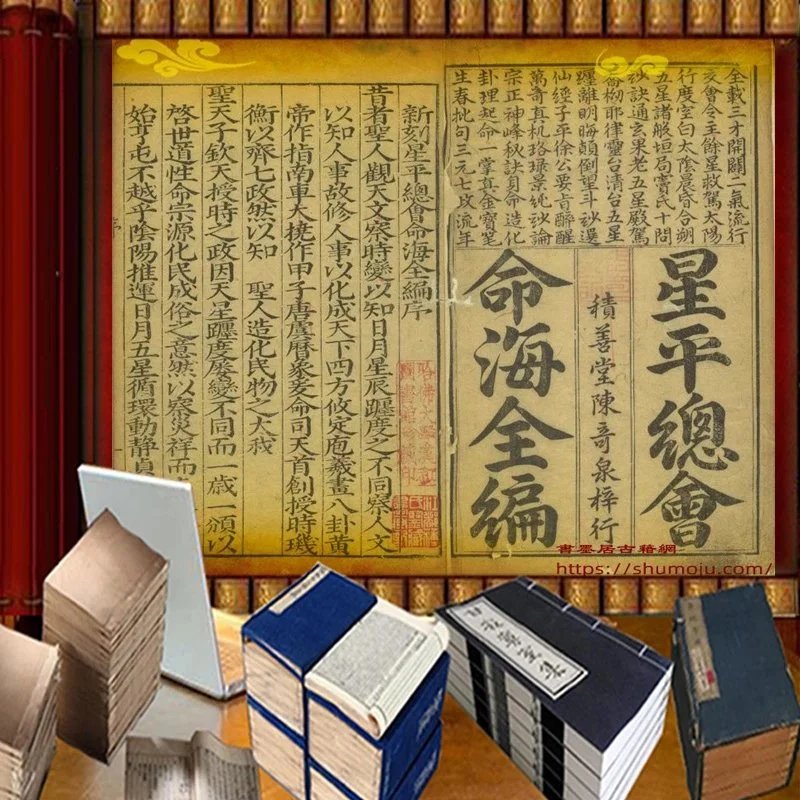 全載三才開闢二氣流行
交會令主餘星救駕太陽
行度空白太陰晨昏合朔
五星諸般垣局竇氏十問
紗訣通玄果老五星殿駕
喬拗耶律靈台清台五星
躔離明晦顛倒望斗紗選
仙經子平徐公妾肯醉醒
萬奇真机珞琭景純紗論
宗正神峰秋訣貟命造化
卦理起命一掌真金寶
生春批句三元七政流年
星平總會
積善堂陳奇泉梓行
命海全編
新刻星平總會命海全編序
昔者聖人觀天文察時變以知日月星辰躔度之不同察人文
以知人事故修人事以化成天下四方攸定庖羲畫八卦黃
帝作指南車大撓作甲子唐虞曆象爰命司天首創授時璣
衡以齊七政然以知 聖人造化民物之大哉
聖天子欽天授時之政因天星躔度屢變不同而一歲一頒以
啓世道性命宗源化民成俗之意然以察災祥而
始亨屯不越乎陰陽推運日月五星循環動静貞
書墨居古籍網
https://shumoju.com/